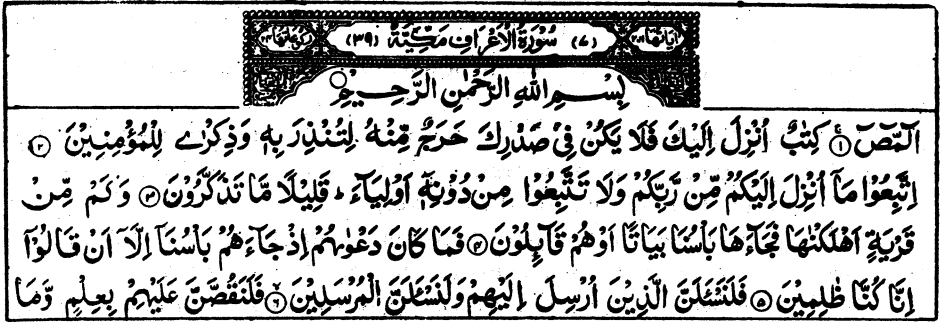 اٰیَاتُهَا ۲۰۶ (۷) سُوْرَةُ الْاَعْرَافِ مَکِّیَّةٌ (۳۹) رُکُوْعَاتُهَا ۲۴
بِسْمِ اللهِ الرَّحْمٰنِ الرَّحِیْمِ
الٓمّٓصٓ ۱ کِتٰبٌ اُنْزِلَ اِلَیْكَ فَلَا یَکُنْ فِیْ صَدْرِكَ حَرَجٌ مِّنْهُ لِتُنْذِرَ بِهٖ وَذِکْرٰی لِلْمُؤْمِنِیْنَ ۲
اِتَّبِعُوْا مَآ اُنْزِلَ اِلَیْکُمْ مِّنْ رَّبِّکُمْ وَلَا تَتَّبِعُوْا مِنْ دُوْنِهٖٓ اَوْلِیَآءَ ؕ قَلِیْلًا مَّا تَذَکَّرُوْنَ ۳ وَکَمْ مِّنْ
قَرْیَةٍ اَهْلَکْنٰهَا فَجَآءَهَا بَاْسُنَا بَیَاتًا اَوْهُمْ قَآىِٕلُوْنَ ۴ فَمَا کَانَ دَعْوٰىهُمْ اِذْجَآءَهُمْ بَاْسُنَآ اِلَّآ اَنْ قَالُوْٓا
اِنَّا کُنَّا ظٰلِمِیْنَ ۵ فَلَنَسْئَلَنَّ الَّذِیْنَ اُرْسِلَ اِلَیْهِمْ وَلَنَسْئَلَنَّ الْمُرْسَلِیْنَ ۶ فَلَنَقُصَّنَّ عَلَیْهِمْ بِعِلْمٍ وَّمَا